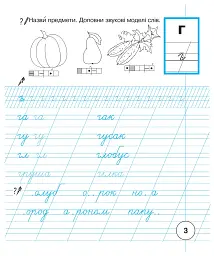 ? Назви предмети. Доповни звукові моделі слів.
Г
г
га га гак
гу гу гусак
гл гл глобус
груша гілка
?
. олуб о . . рок но . а
. ород а . роном папу . .
3